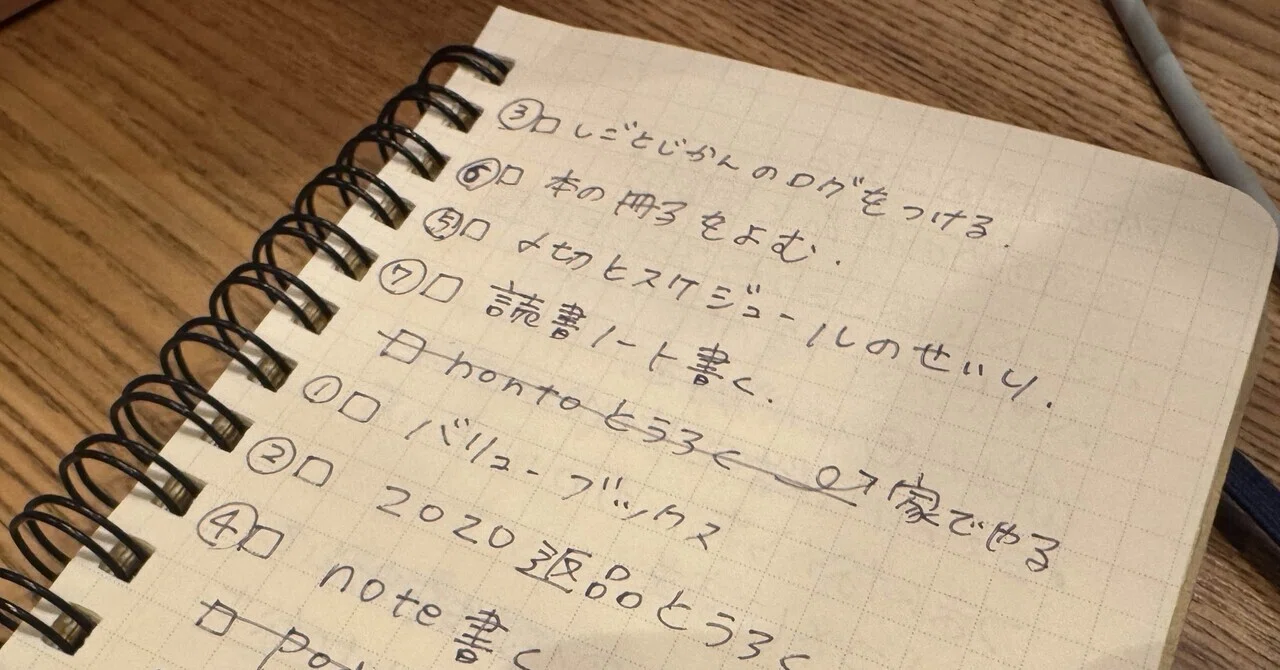 ③□ しごとじかんのログをつける.
⑥□ 本の冊子をよむ.
⑤□ 〆切とスケジュールのせいり.
⑦□ 読書ノート書く.
□ honto とうろく → 家でやる
①□ バリューブックス
②□ 2020返品とうろく
④□ note書く
□